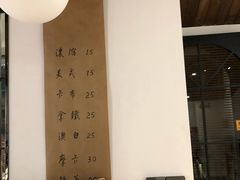 濃縮 15
美式 15
卡布 25
拿鐵 25
澳白 25
摩卡 30